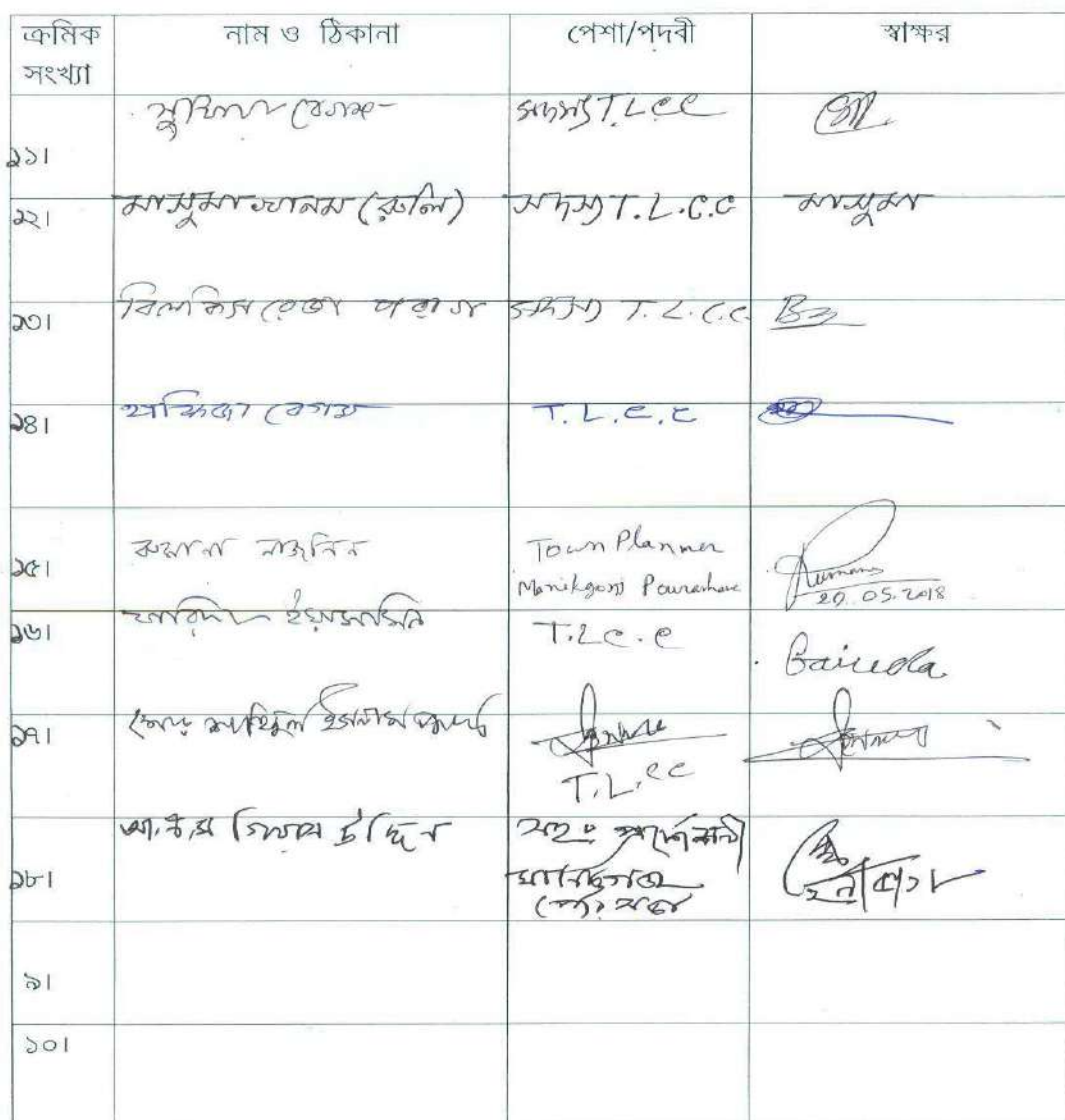 ক্রমিক সংখ্যা নাম ও ঠিকানা পেশা/পদবী স্বাক্ষর
১১। বেগম সদস্য T.L.C.C
১২। মাসুমা খানম (রুলি) সদস্য T.L.C.C মাসুমা
১৩। বিলকিস রেজা পরাগ সদস্য T.L.C.C.
১৪। হাফিজা বেগম T.L.C.C
১৫। রুমানা নাজনিন Town Planner Rumana
Manikgonj Pourashava 29.05.2018
১৬। ফারিদা ইয়াসমিন T.L.C.C
১৭। ইসলাম
T.L.CC
১৮। আ.ক.ম গিয়াস উদ্দিন সহঃ প্রকৌশলী
মানিকগঞ্জ
পৌরসভা
৯।
১০।